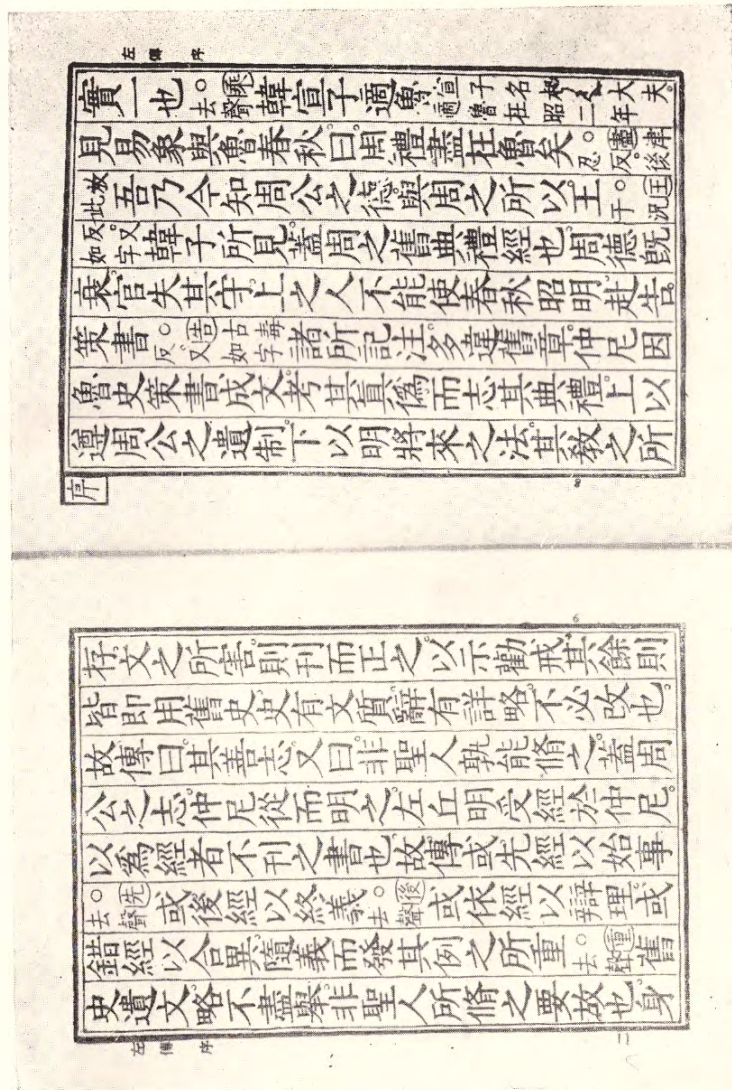 左傳 序
實一也。○乘去聲韓宣子適魯宣子名大夫。適魯在昭二年
見易象與魯春秋。曰周禮盡在魯矣。○盡津忍反。後
放此吾乃今知周公之德。與周之所以王。○王于況
反。又如字韓子所見。蓋周之舊典禮經也。周德既
衰。官失其守。上之人不能使春秋昭明。赴告
策書。○告古毒反。又如字諸所記注。多違舊章。仲尼因
魯史策書成文。考其真偽。而志其典禮。上以
遵周公之遺制。下以明將來之法。其教之所
序
存。文之所害。則刊而正之。以示勸戒。其餘則
皆即用舊史。史有文質。辭有詳略。不必改也。
故傳曰。其善志。又曰。非聖人孰能脩之。蓋周
公之志。仲尼從而明之。左丘明受經於仲尼。
以為經者不刊之書也。故傳或先經以始事。
○先去聲或後經以終義。○後去聲或依經以辯理。或
錯經以合異。隨義而發。其例之所重。○重去聲舊
史遺文。略不盡舉。非聖人所脩之要故也。身
左傳 序 二